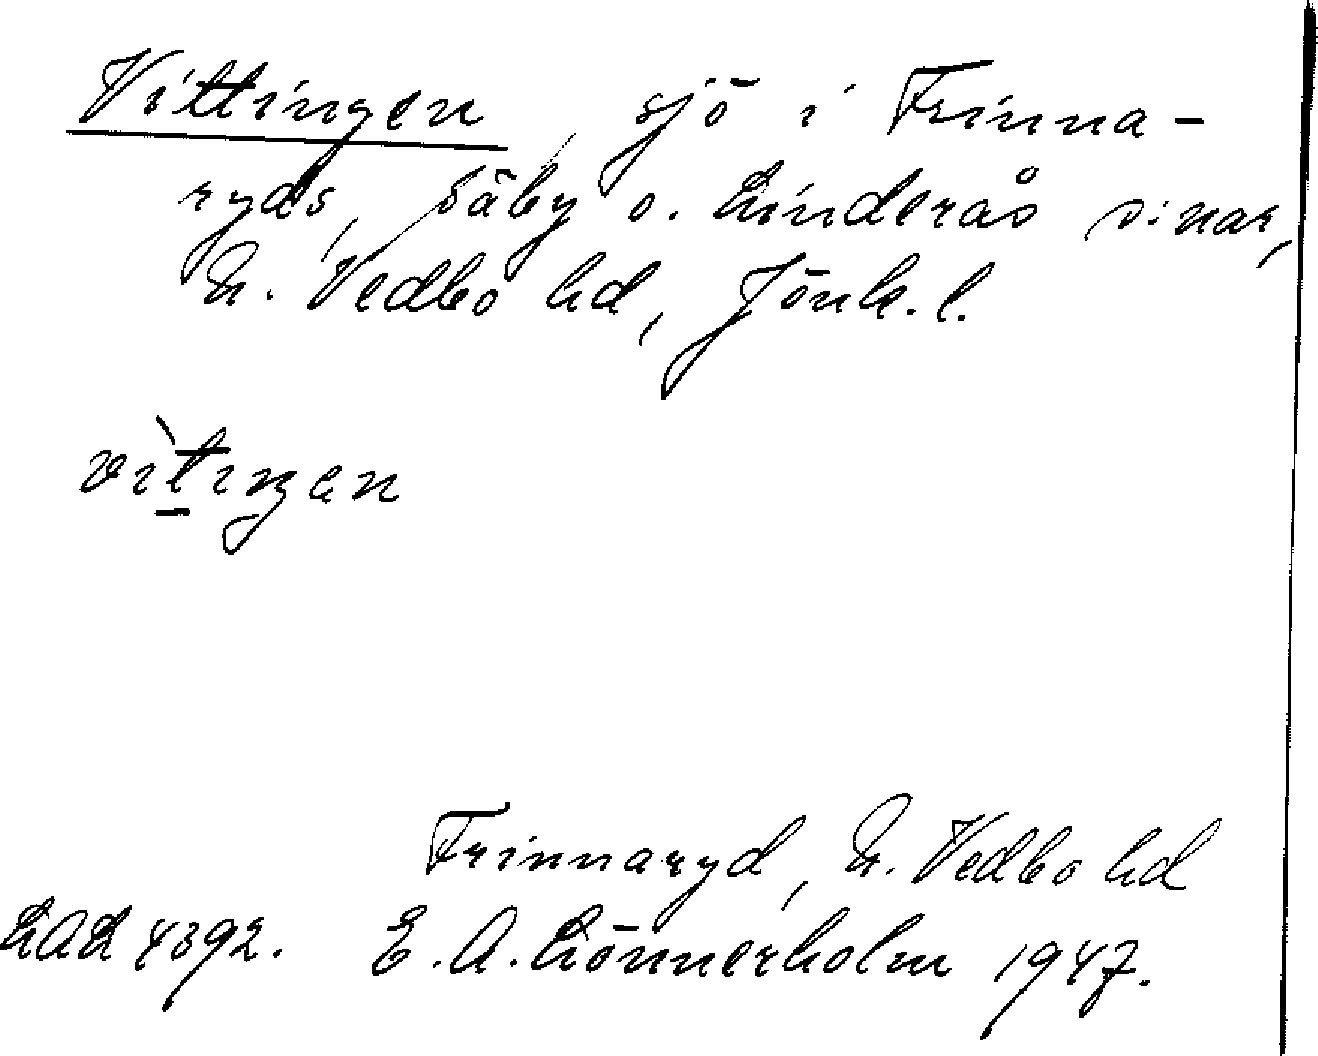 Vittingen, sjö i Frinna-
ryds, Säby o. Linderås s:nar,
N. Vedbo hd, Jönk. l.
vìtiŋen
Frinnaryd, N. Vedbo hd
4392. E. A. Lönnerholm 1947.